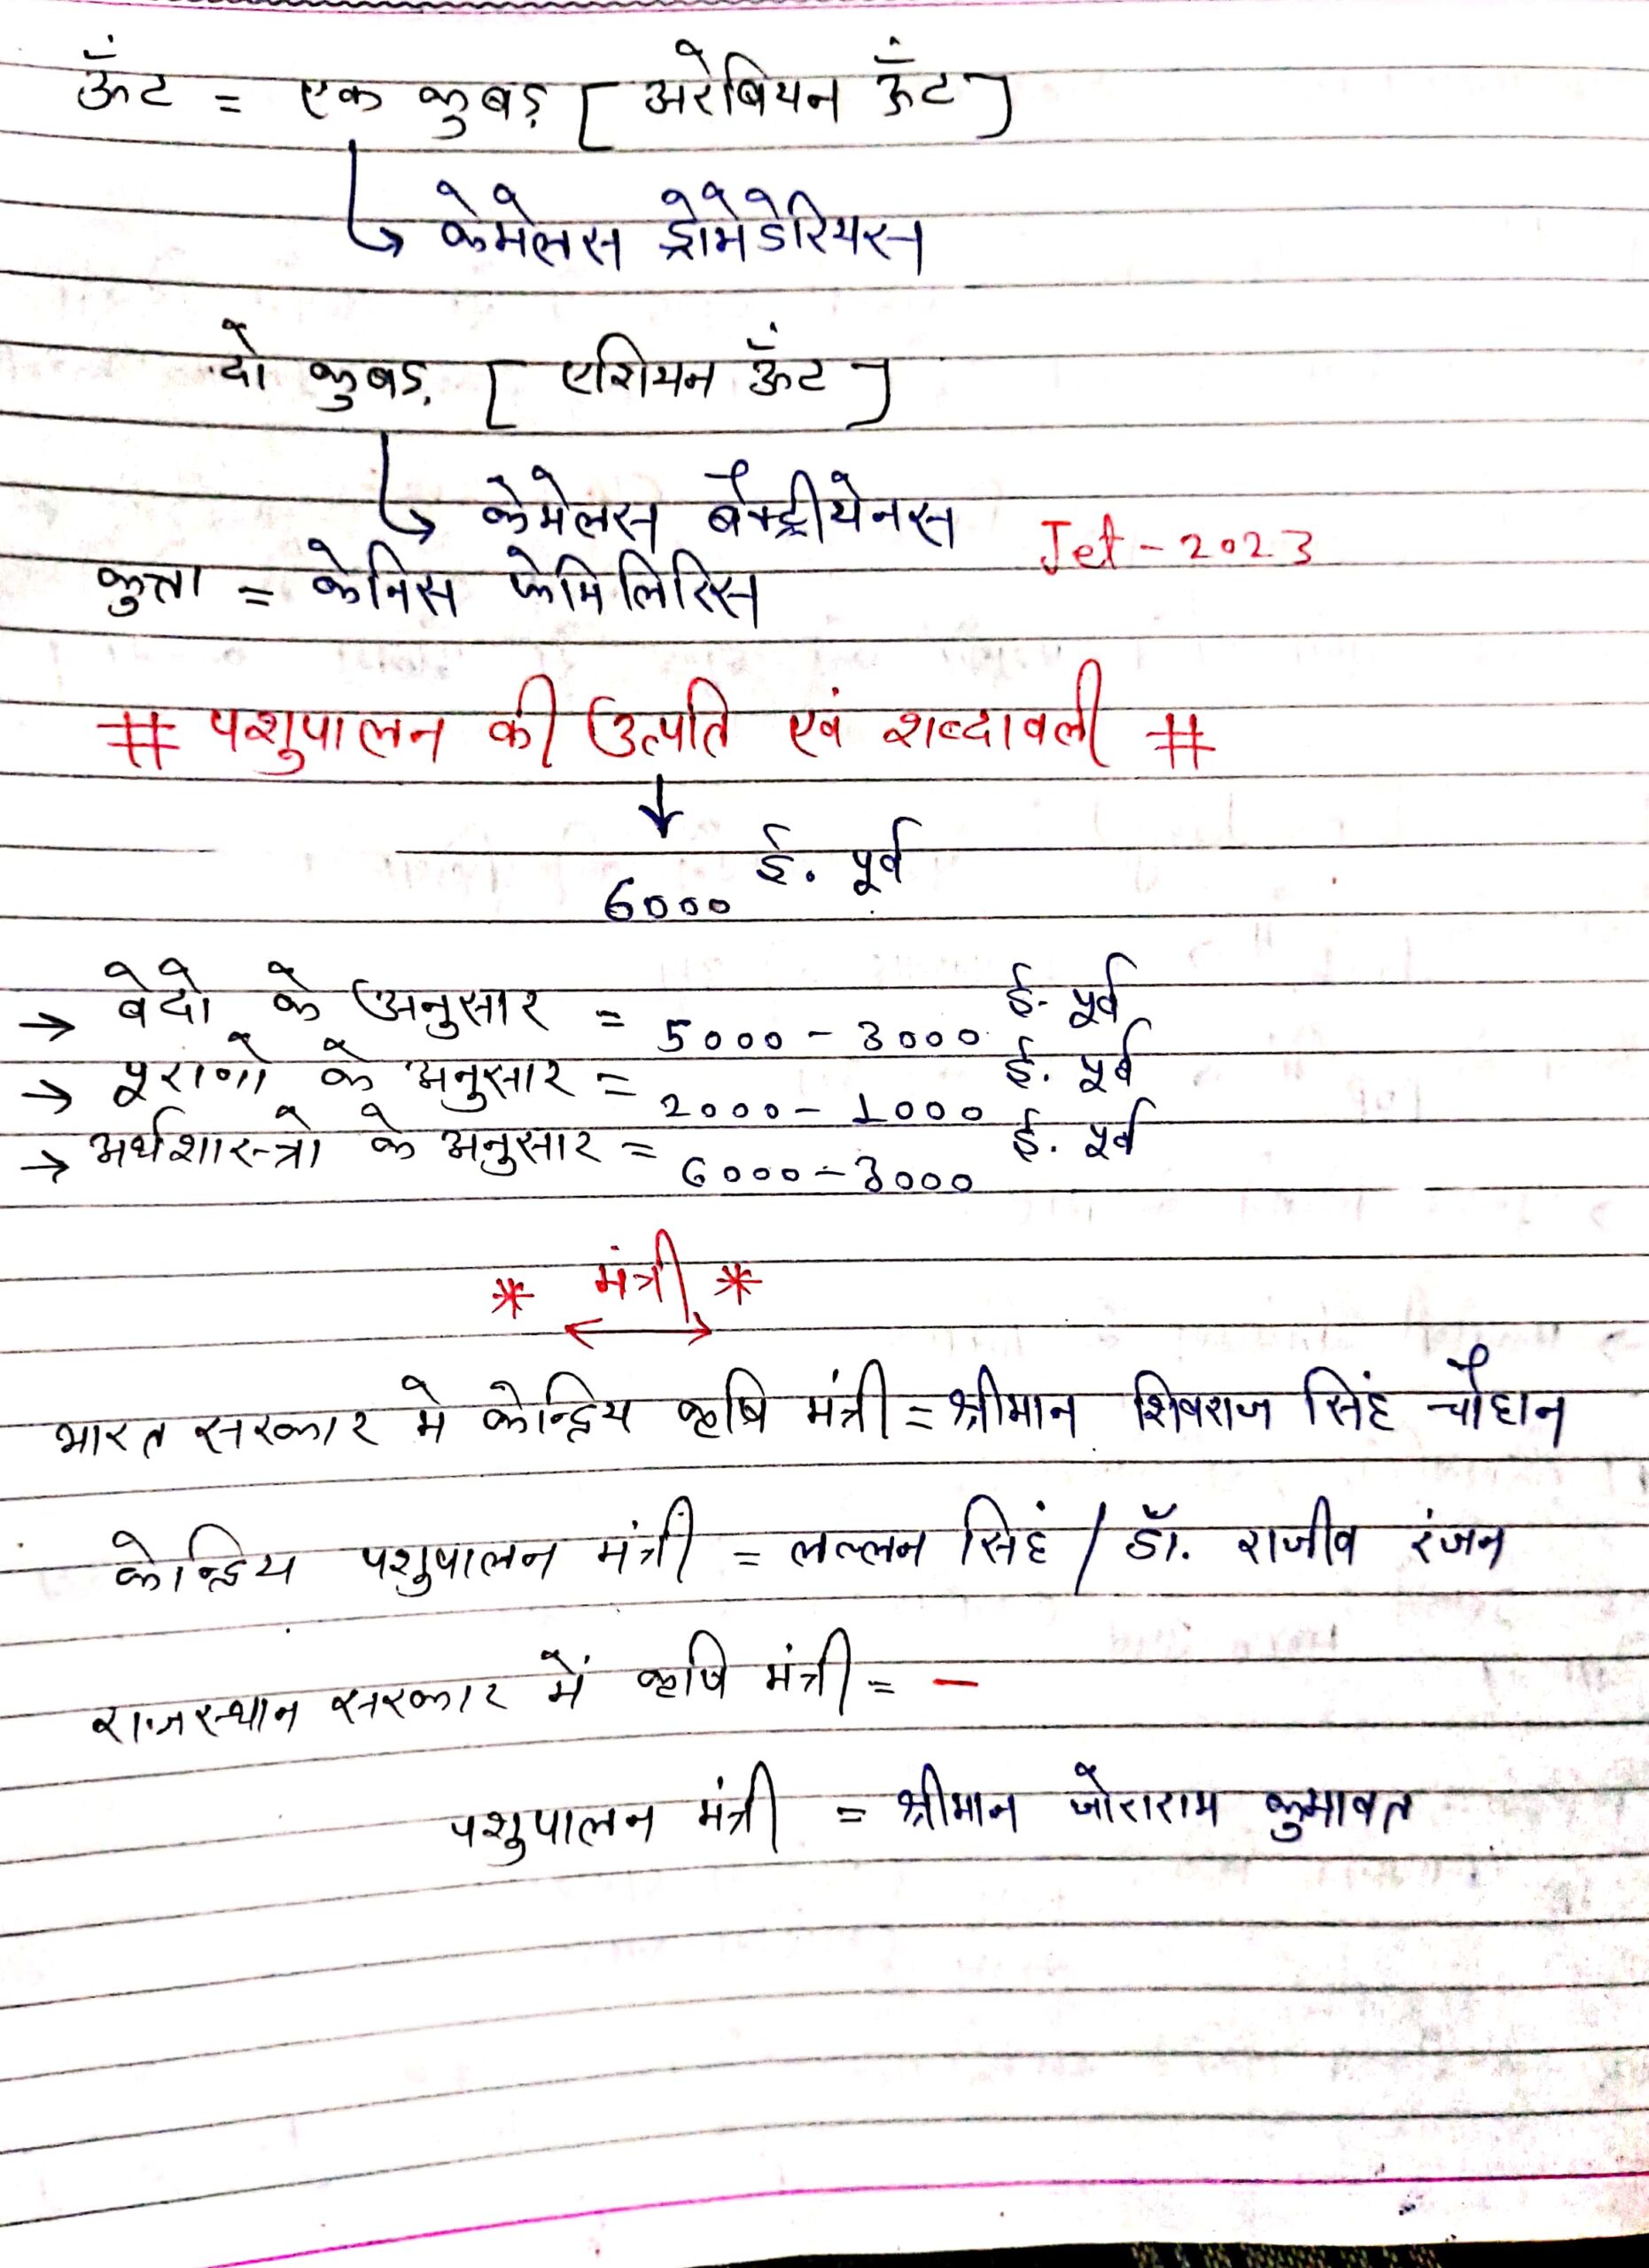 ऊँट = एक कुबड़ [ अरेबियन ऊँट ]
↳ केमेलस ड्रोमेडेरियस
दो कुबड़ [ एशियन ऊँट ]
↳ केमेलस बैक्ट्रीयेनस
Jet - 2023
कुत्ता = केनिस फेमिलिरिस
# पशुपालन की उत्पति एवं शब्दावली #
↓
6000 ई. पूर्व
→ वेदो के अनुसार = 5000 - 3000 ई. पूर्व
→ पूराणो के अनुसार = 2000 - 1000 ई. पूर्व
→ अर्थशास्त्रो के अनुसार = 6000 - 3000 ई. पूर्व
* मंत्री *
भारत सरकार मे केन्द्रिय कृषि मंत्री = श्रीमान शिवराज सिंह चौहान
केन्द्रिय पशुपालन मंत्री = लल्लन सिहं / डॉ. राजीव रंजन
राजस्थान सरकार में कृषि मंत्री = -
पशुपालन मंत्री = श्रीमान जोराराम कुमावत